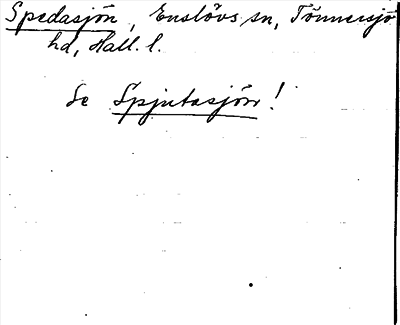 Spedasjön, Enslövs sn, Tönnersjö
hd, Hall. l.
Se Spjutasjön!